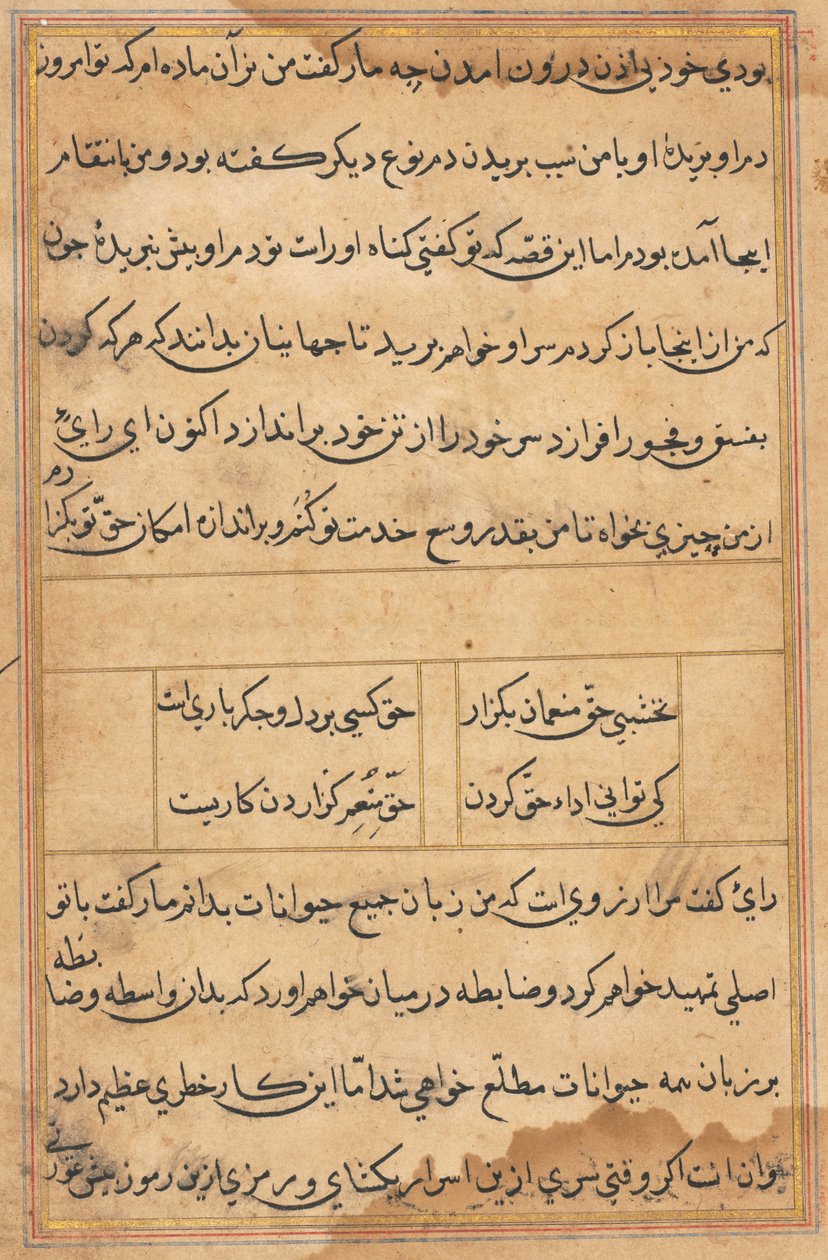 بودي خود بي اذن درون امدن چه مار كفت من بزآن ماده ام كه تو امروز
دم او بريدۀ او با من سبب بريدن دم نوع ديكر كفته بود و من بانتقام
اينجا آمده بودم اما اين قصّه كه تو كفتي كناه اوراست تو دم او بيش نبريدۀ جون
كه من از اينجا باز كردم سر او خواهم بريد تا جهانيان بدانند كه هر كه كردن
بفسق و فجور افرازد سر خود را از تن خود براندازد اكنون اي راي
از من چيزي بخواه تا من بقدر وسع خدمت تو كنم و بر اندازه امكان حقّ تو بكزارم
نخشبي حقّ منعمان بكزار
حق كسي بر دل و جكر باري است
كي تواني اداء حقّ كردن
حَقِّ مُنْعِم كزاردن كاريست
رائ كفت مرا ارزوي است كه من زبان جميع حيوانات بدانم مار كفت با تو
اصلي تمهيد خواهم كرد و ضابطه در ميان خواهم اورد كه بدان واسطه و ضابطه
بر زبان همه حيوانات مطلّع خواهي شد امّا اين كار خطري عظيم دارد
وان انست اكر وقتي سري ازين اسرار بكشاي و رمزي ازين رموز پيش عورتي